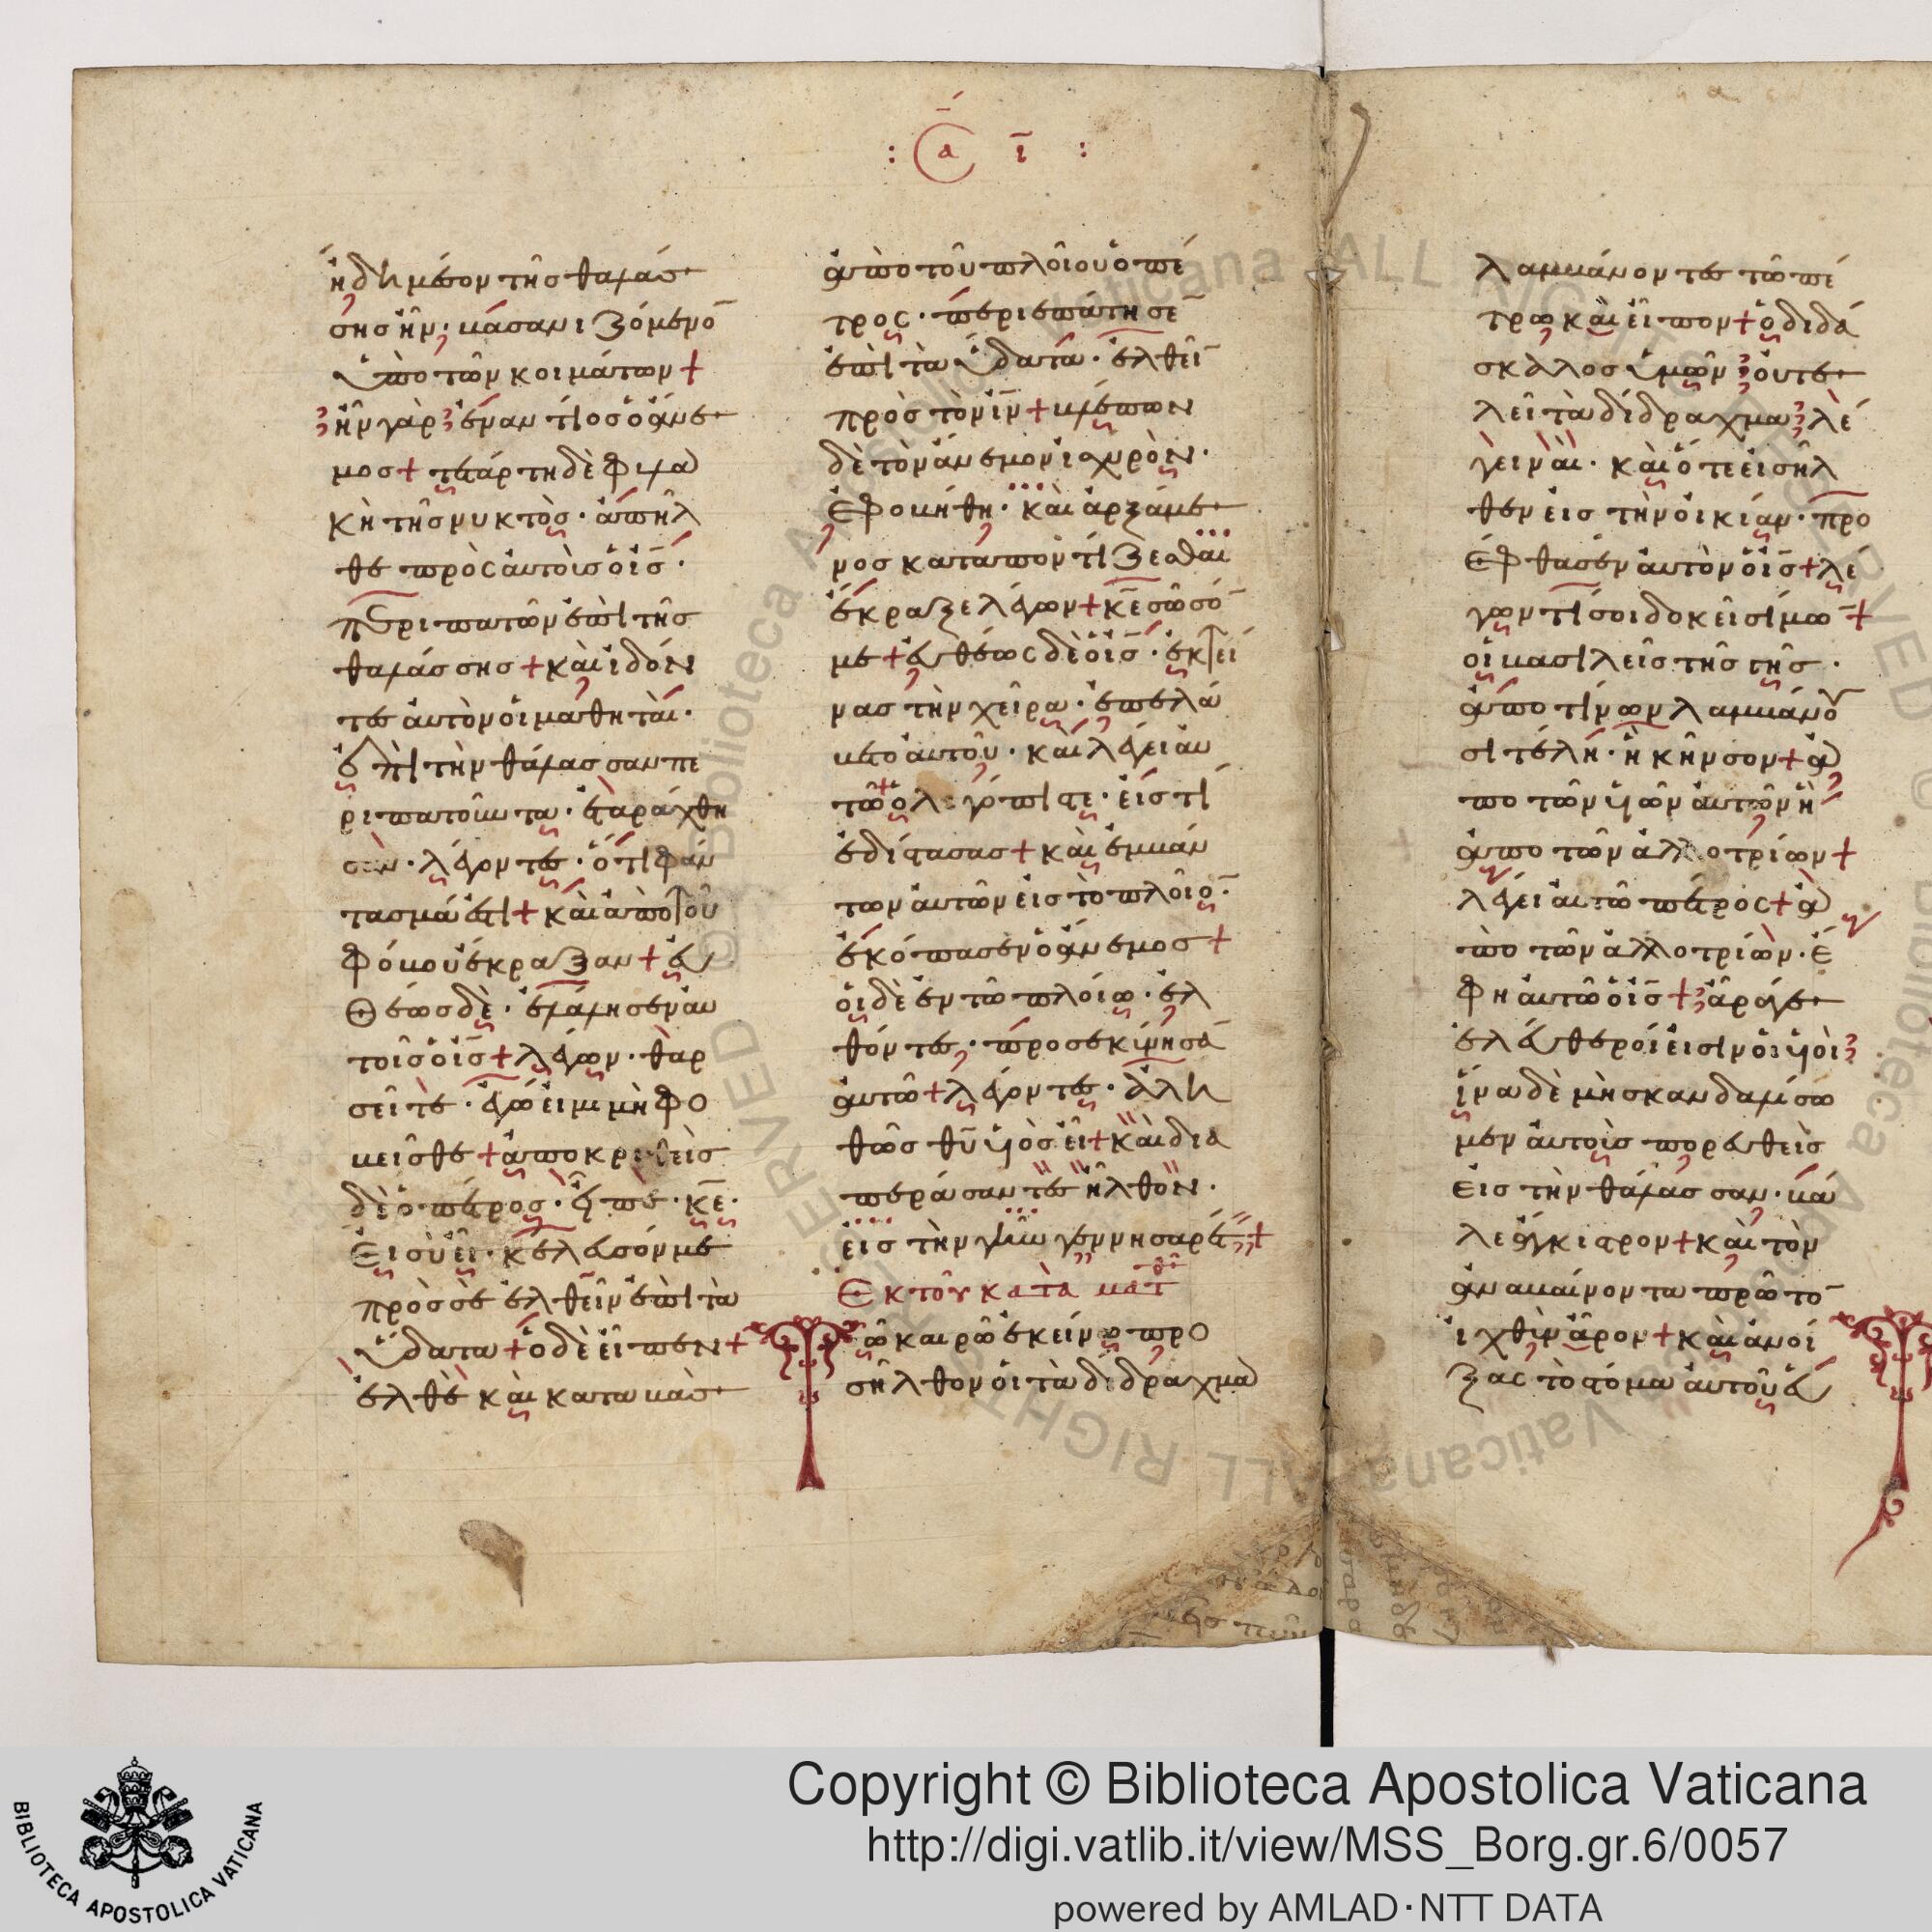 : Κ̅ Α Ι̅ :
ἤδη μέσον τῆς θαλάσ
σης ἦν, βασανιζόμενο̅
ὑπὸ τῶν κοιμάτων +
ἦν γὰρ ἐναντίος ὁ ἄνε
μος + τετάρτη δὲ φυλα
κῆ τῆς νυκτὸς · ἀπῆλ
θε πρὸς αὐτοὺς ὁ ἰς̅ ·
περιπατῶν ἐπὶ τῆς
θαλάσσης + καὶ ἰδόν
τες αὐτὸν οἱ μαθηταὶ ·
ἐπὶ τὴν θάλασσαν πε
ριπατοῦντα · ἐταράχθη
σαν · λέγοντες · ὅτι φάν
τασμά ἐστι + καὶ ἀπὸ τοῦ
φόβου ἔκραξαν + εὐ
θέως δὲ · ἐλάλησεν αὐ
τοῖς ὁ ἰς̅ + λέγων · θαρ
σεῖτε · ἐγώ εἰμι μὴ φο
βεῖσθε + ἀποκριθεὶς
δὲ ὁ πέτρος · εἶπε · κε̅ ·
εἰ σὺ εἶ · κέλευσόν με
πρὸς σὲ ἐλθεῖν ἐπὶ τὰ
ὕδατα + ὁ δὲ εἶπεν +
ἐλθὲ καὶ καταβὰς
ἀπὸ τοῦ πλοίου ὁ πέ
τρος · περιεπάτησε̅
ἐπὶ τὰ ὕδατα · ἐλθεῖ̅
πρὸς τὸν ἰν̅ + βλέπων
δὲ τὸν ἄνεμον ἰσχυρὸν ·
ἐφοβήθη · καὶ ἀρξάμε
νος καταποντίζεσθαι
ἔκραξε λέγων + κε̅ σῶσό̅
με + εὐθέως δὲ ὁ ἰς̅ · ἐκτεί
νας τὴν χεῖρα · ἐπελά
βετο αὐτοῦ · καὶ λέγει αὐ
τῶ + ὀλιγόπιστε · εἰς τί
ἐδίστασας + καὶ ἐμβάν
των αὐτῶν εἰς τὸ πλοῖο̅ ·
ἐκόπασεν ὁ ἄνεμος +
οἱ δὲ ἐν τῶ πλοίω · ἐλ
θόντες · προσεκύνησα̅
αὐτῶ + λέγοντες · ἀλη
θῶς θυ̅ υἱὸς εἶ + καὶ δια
περάσαντες ἦλθον ·
εἰς τὴν γῆν γεννησαρέτ +
Ἐκ τοῦ κατὰ ματθ
Τῶ καιρῶ ἐκείνω προ
σῆλθον οἱ τὰ δίδραχμα
λαμβάνοντες τῶ πέ
τρω καὶ εἶπον + ὁ διδά
σκαλος ὑμῶν · οὐ τε
λεῖ τὰ δίδραχμα · λέ
γει ναὶ · καὶ ὅτε εἰσῆλ
θεν εἰς τὴν οἰκίαν · προ
έφθασεν αὐτὸν ὁ ἰς̅ + λέ
γων τί σοι δοκεῖ σίμω̅ +
οἱ βασιλεῖς τῆς γῆς ·
ἀπὸ τίνων λαμβάνου
σι τέλη · ἢ κῆνσον + ἀ
πὸ τῶν υἱῶν αὐτῶν ἢ
ἀπὸ τῶν ἀλλοτρίων +
λέγει αὐτῶ πέτρος + ἀ
πὸ τῶν ἀλλοτρίων · ἔ
φη αὐτῶ ὁ ἰς̅ + ἄραγε
ἐλεύθεροί εἰσιν οἱ υἱοὶ
ἵνα δὲ μὴ σκανδαλίσω
μεν αὐτοὺς πορευθεὶς
εἰς τὴν θάλασσαν · βά
λε ἄγκιστρον + καὶ τὸν
ἀναβαίνοντα πρῶτο̅
ἰχθὺν ἆρον + καὶ ἀνοί
ξας τὸ στόμα αὐτοῦ εὑ
Copyright © Biblioteca Apostolica Vaticana
http://digi.vatlib.it/view/MSS_Borg.gr.6/0057
powered by AMLAD·NTT DATA
BIBLIOTECA APOSTOLICA VATICANA